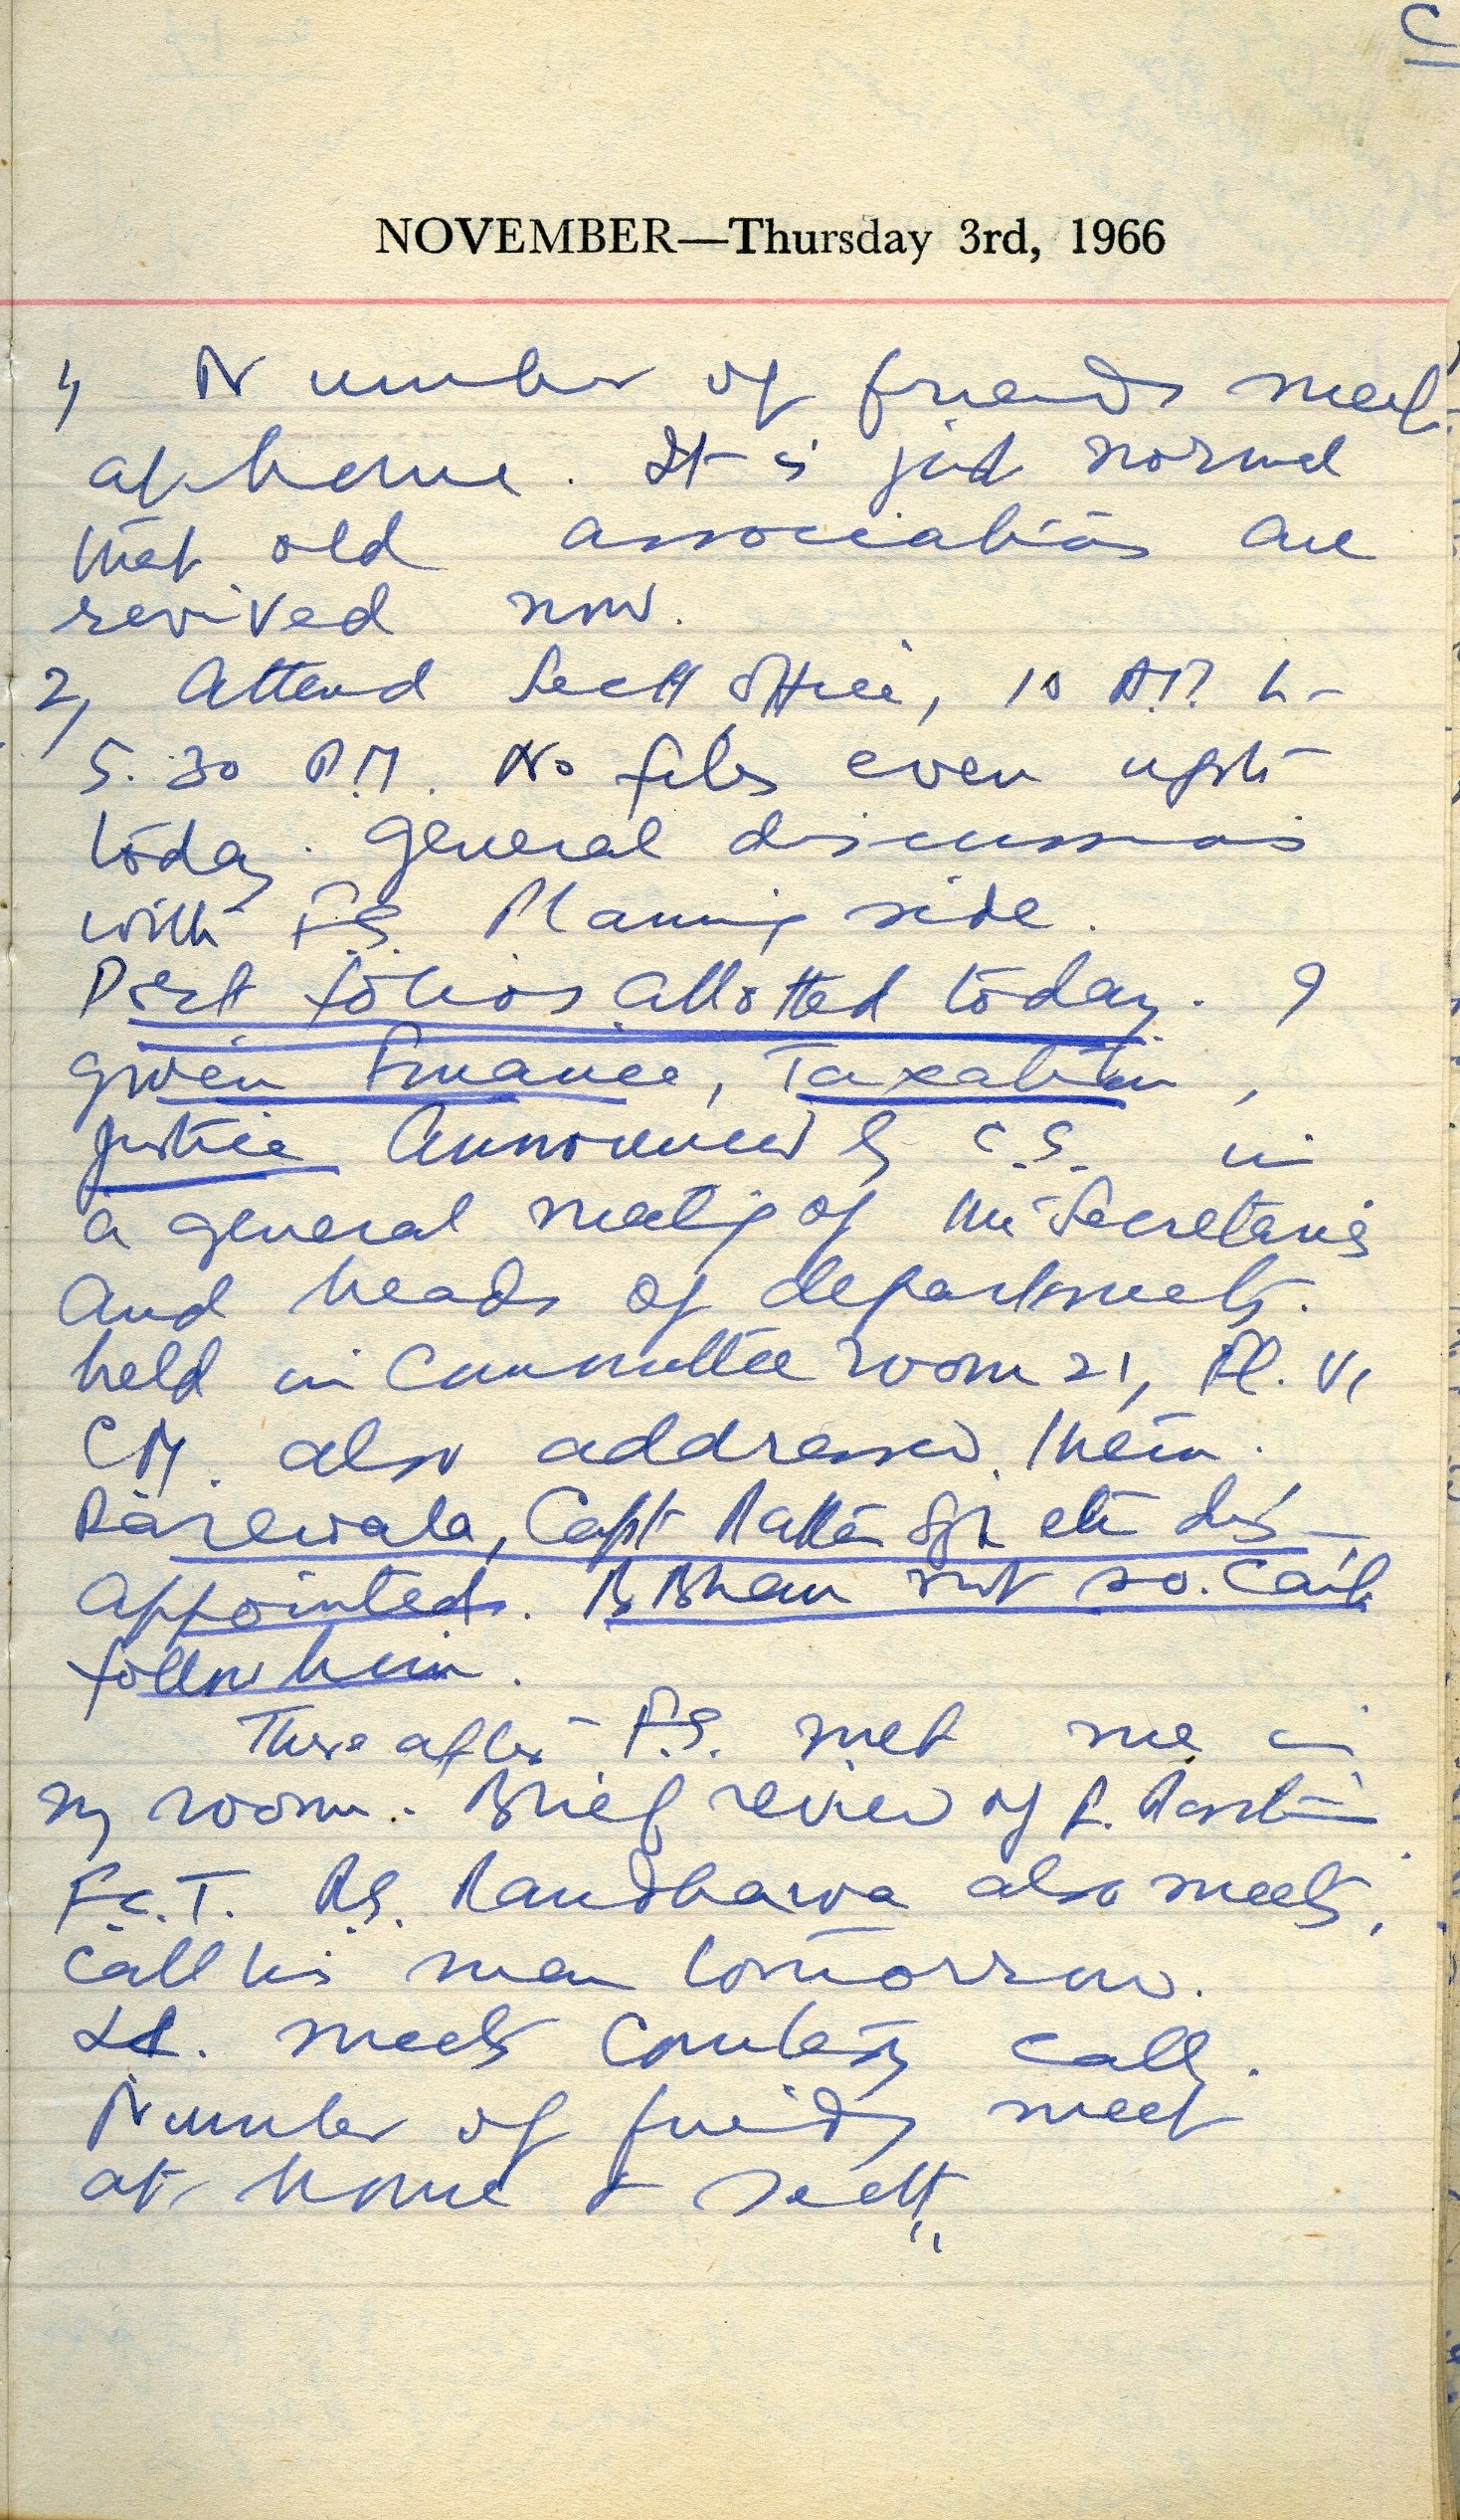 C
NOVEMBER—Thursday 3rd, 1966
1) Number of friends meet
at home. It is just normal
that old associations are
revived now.
2) Attend Sectt Office, 10 A.M. to
5.30 P.M. No files even upto
today. General discussions
with F.S. Planning side.
Portfolios allotted today. I
given Finance, Taxation,
Justice Announced by C.S. in
a general meeting of the Secretaries
and heads of departments.
held in Committee room 21, Fl. VI
CM. also addressed them.
Rarewala, Capt Rattan Sgh etc dis-
appointed. B Bhan not so. Can't
follow him.
Thereafter F.S. met me in
my room. Brief review of P. Position
E.T. R.S. Randhawa also meets,
call his men tomorrow.
meets Courtesy call.
Number of friends meet
at home & Sectt.